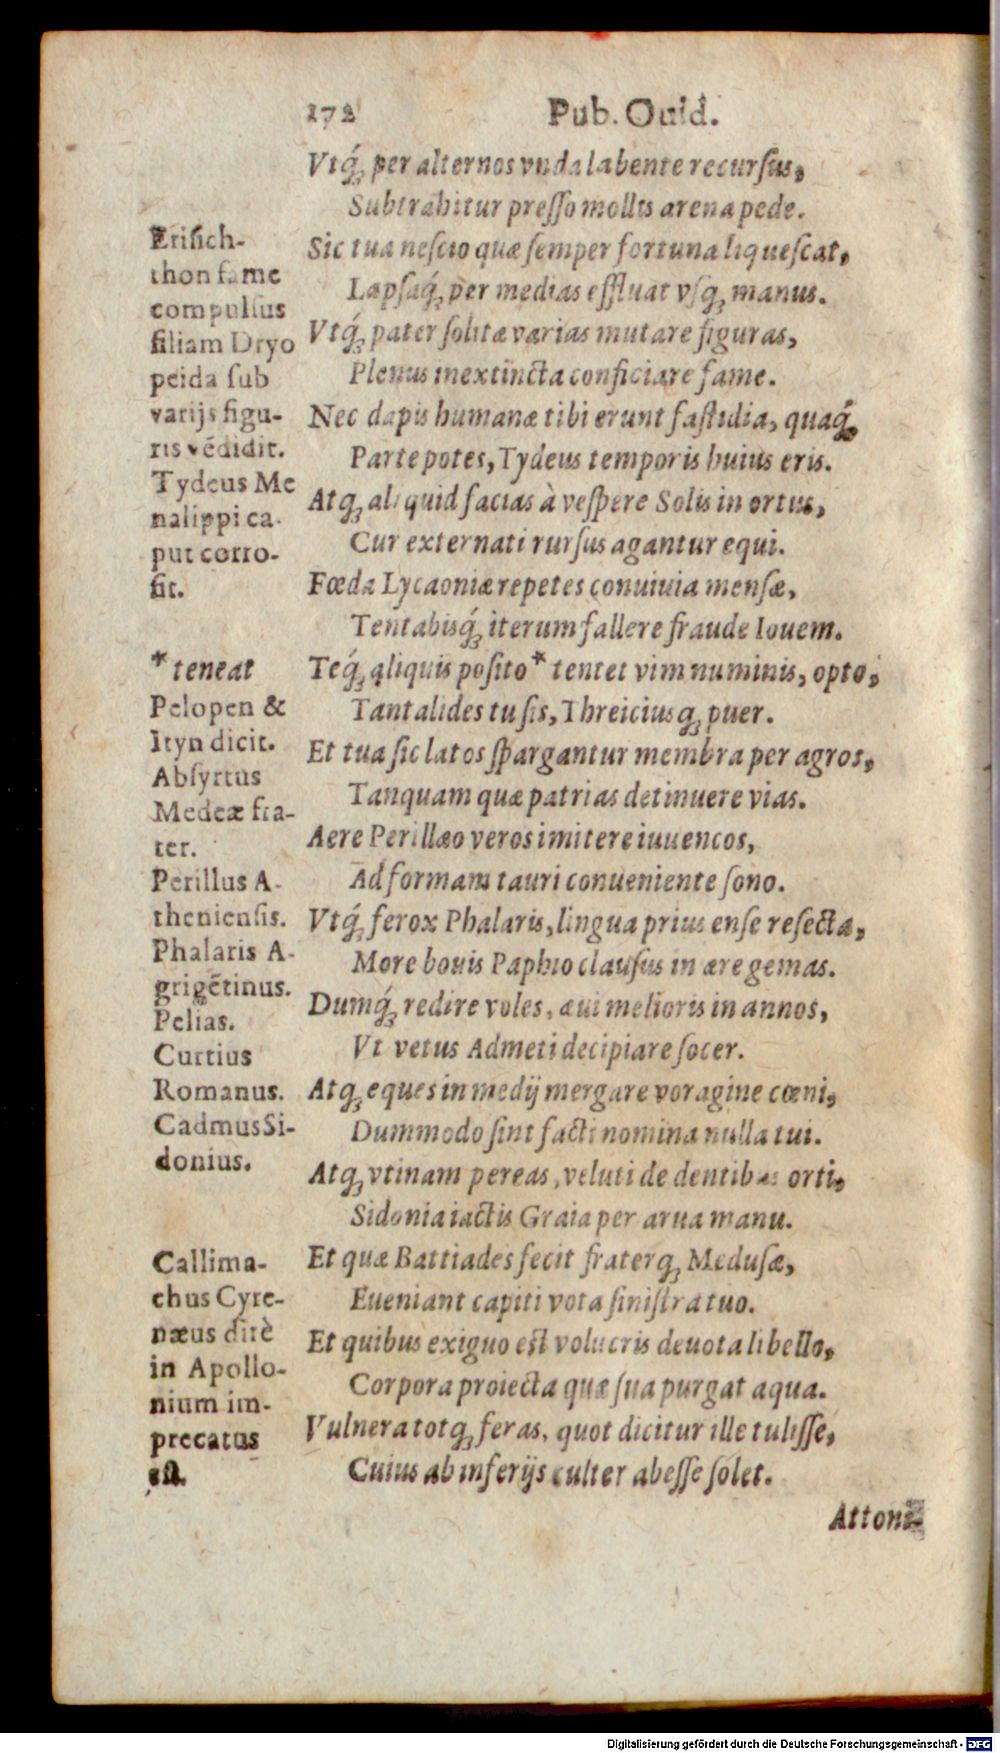 172 Pub. Ouid.
Vtq́ꝫ per alternos vnda labente recursus,
Subtrahitur presso mollis arena pede.
Sic tua nescio quæ semper fortuna liquescat,
Lapsaq́ꝫ per medias effluat vsqꝫ manus.
Vtq́ꝫ pater solitæ varias mutare figuras,
Plenus inextincta conficiare fame.
Nec dapis humanæ tibi erunt fastidia, quaq́ꝫ
Parte potes, Tydeus temporis huius eris.
Atqꝫ aliquid facias à vespere Solis in ortus,
Cur externati rursus agantur equi.
Fœda Lycaoniæ repetes conuiuia mensæ,
Tentabisq́ꝫ iterum fallere fraude Iouem.
Teq́ꝫ aliquis posito * tentet vim numinis, opto,
Tantalides tu sis, Threiciusqꝫ puer.
Et tua sic latos spargantur membra per agros,
Tanquam quæ patrias detinuere vias.
Aere Perillæo veros imitere iuuencos,
Ad formam tauri conueniente sono.
Vtq́ꝫ ferox Phalaris, lingua prius ense resecta,
More bouis Paphio clausus in ære gemas.
Dumq́ꝫ redire voles, æui melioris in annos,
Vt vetus Admeti decipiare socer.
Atqꝫ eques in medij mergare voragine cœni,
Dummodo sint facti nomina nulla tui.
Atqꝫ vtinam pereas, veluti de dentibus orti,
Sidonia iactis Graia per arua manu.
Et quæ Battiades fecit fraterqꝫ Medusæ,
Eueniant capiti vota sinistra tuo.
Et quibus exiguo est volucris deuota libello,
Corpora proiecta quæ sua purgat aqua.
Vulnera totqꝫ feras, quot dicitur ille tulisse,
Cuius ab inferijs culter abesse solet.
Attoni-
Erisich-
thon fame
compulsus
filiam Dryo
peida sub
varijs figu-
ris vẽdidit.
Tydeus Me
nalippi ca-
put corro-
sit.
* teneat
Pelopen &
Ityn dicit.
Absyrtus
Medeæ fra-
ter.
Perillus A-
theniensis.
Phalaris A-
grigẽtinus.
Pelias.
Curtius
Romanus.
Cadmus Si-
donius.
Callima-
chus Cyre-
næus dirè
in Apollo-
nium im-
precatus
est.
Digitalisierung gefördert durch die Deutsche Forschungsgemeinschaft - DFG